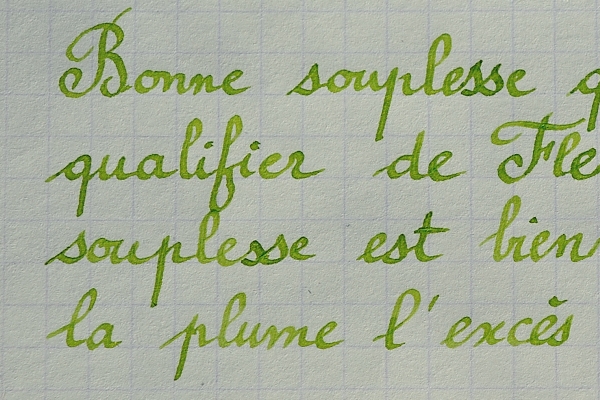 Bonne souplesse q
qualifier de Fle
souplesse est bien
la plume l'excès